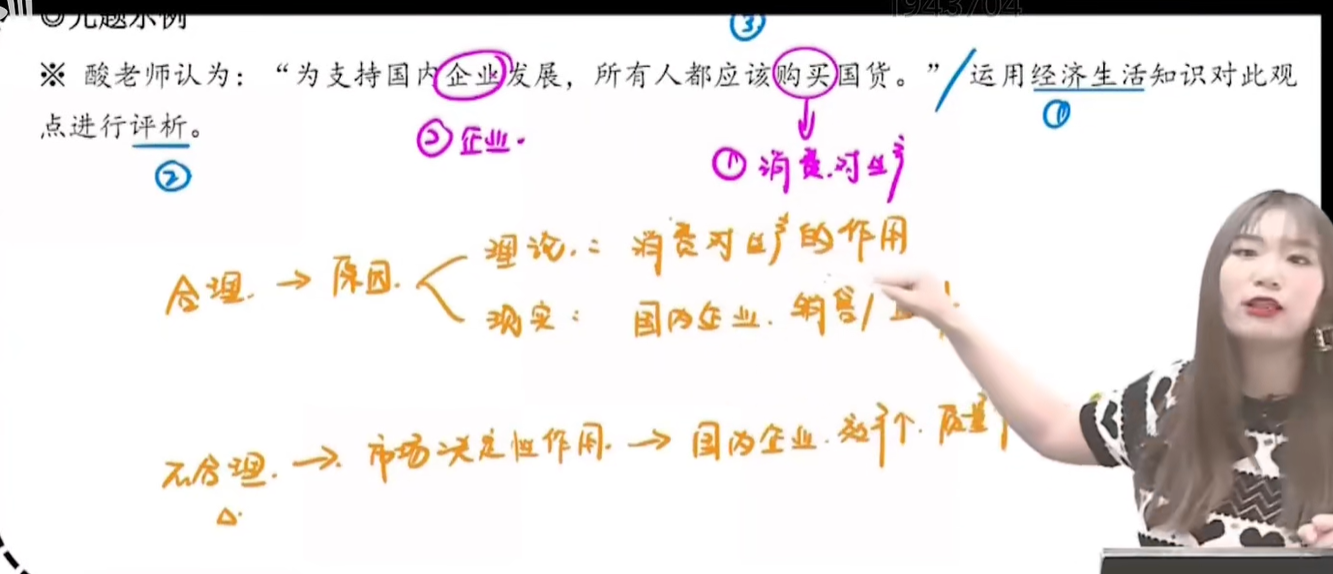 ◎元题示例
1943704
③
※ 酸老师认为：“为支持国内企业发展，所有人都应该购买国货。”/运用经济生活知识对此观
点进行评析。
①
②
②企业.
①消费.对生产
合理. → 原因.
理论.：消费对生产的作用
现实：国内企业.销售/
不合理. → 市场决定性作用. → 国内企业.效率个.质量